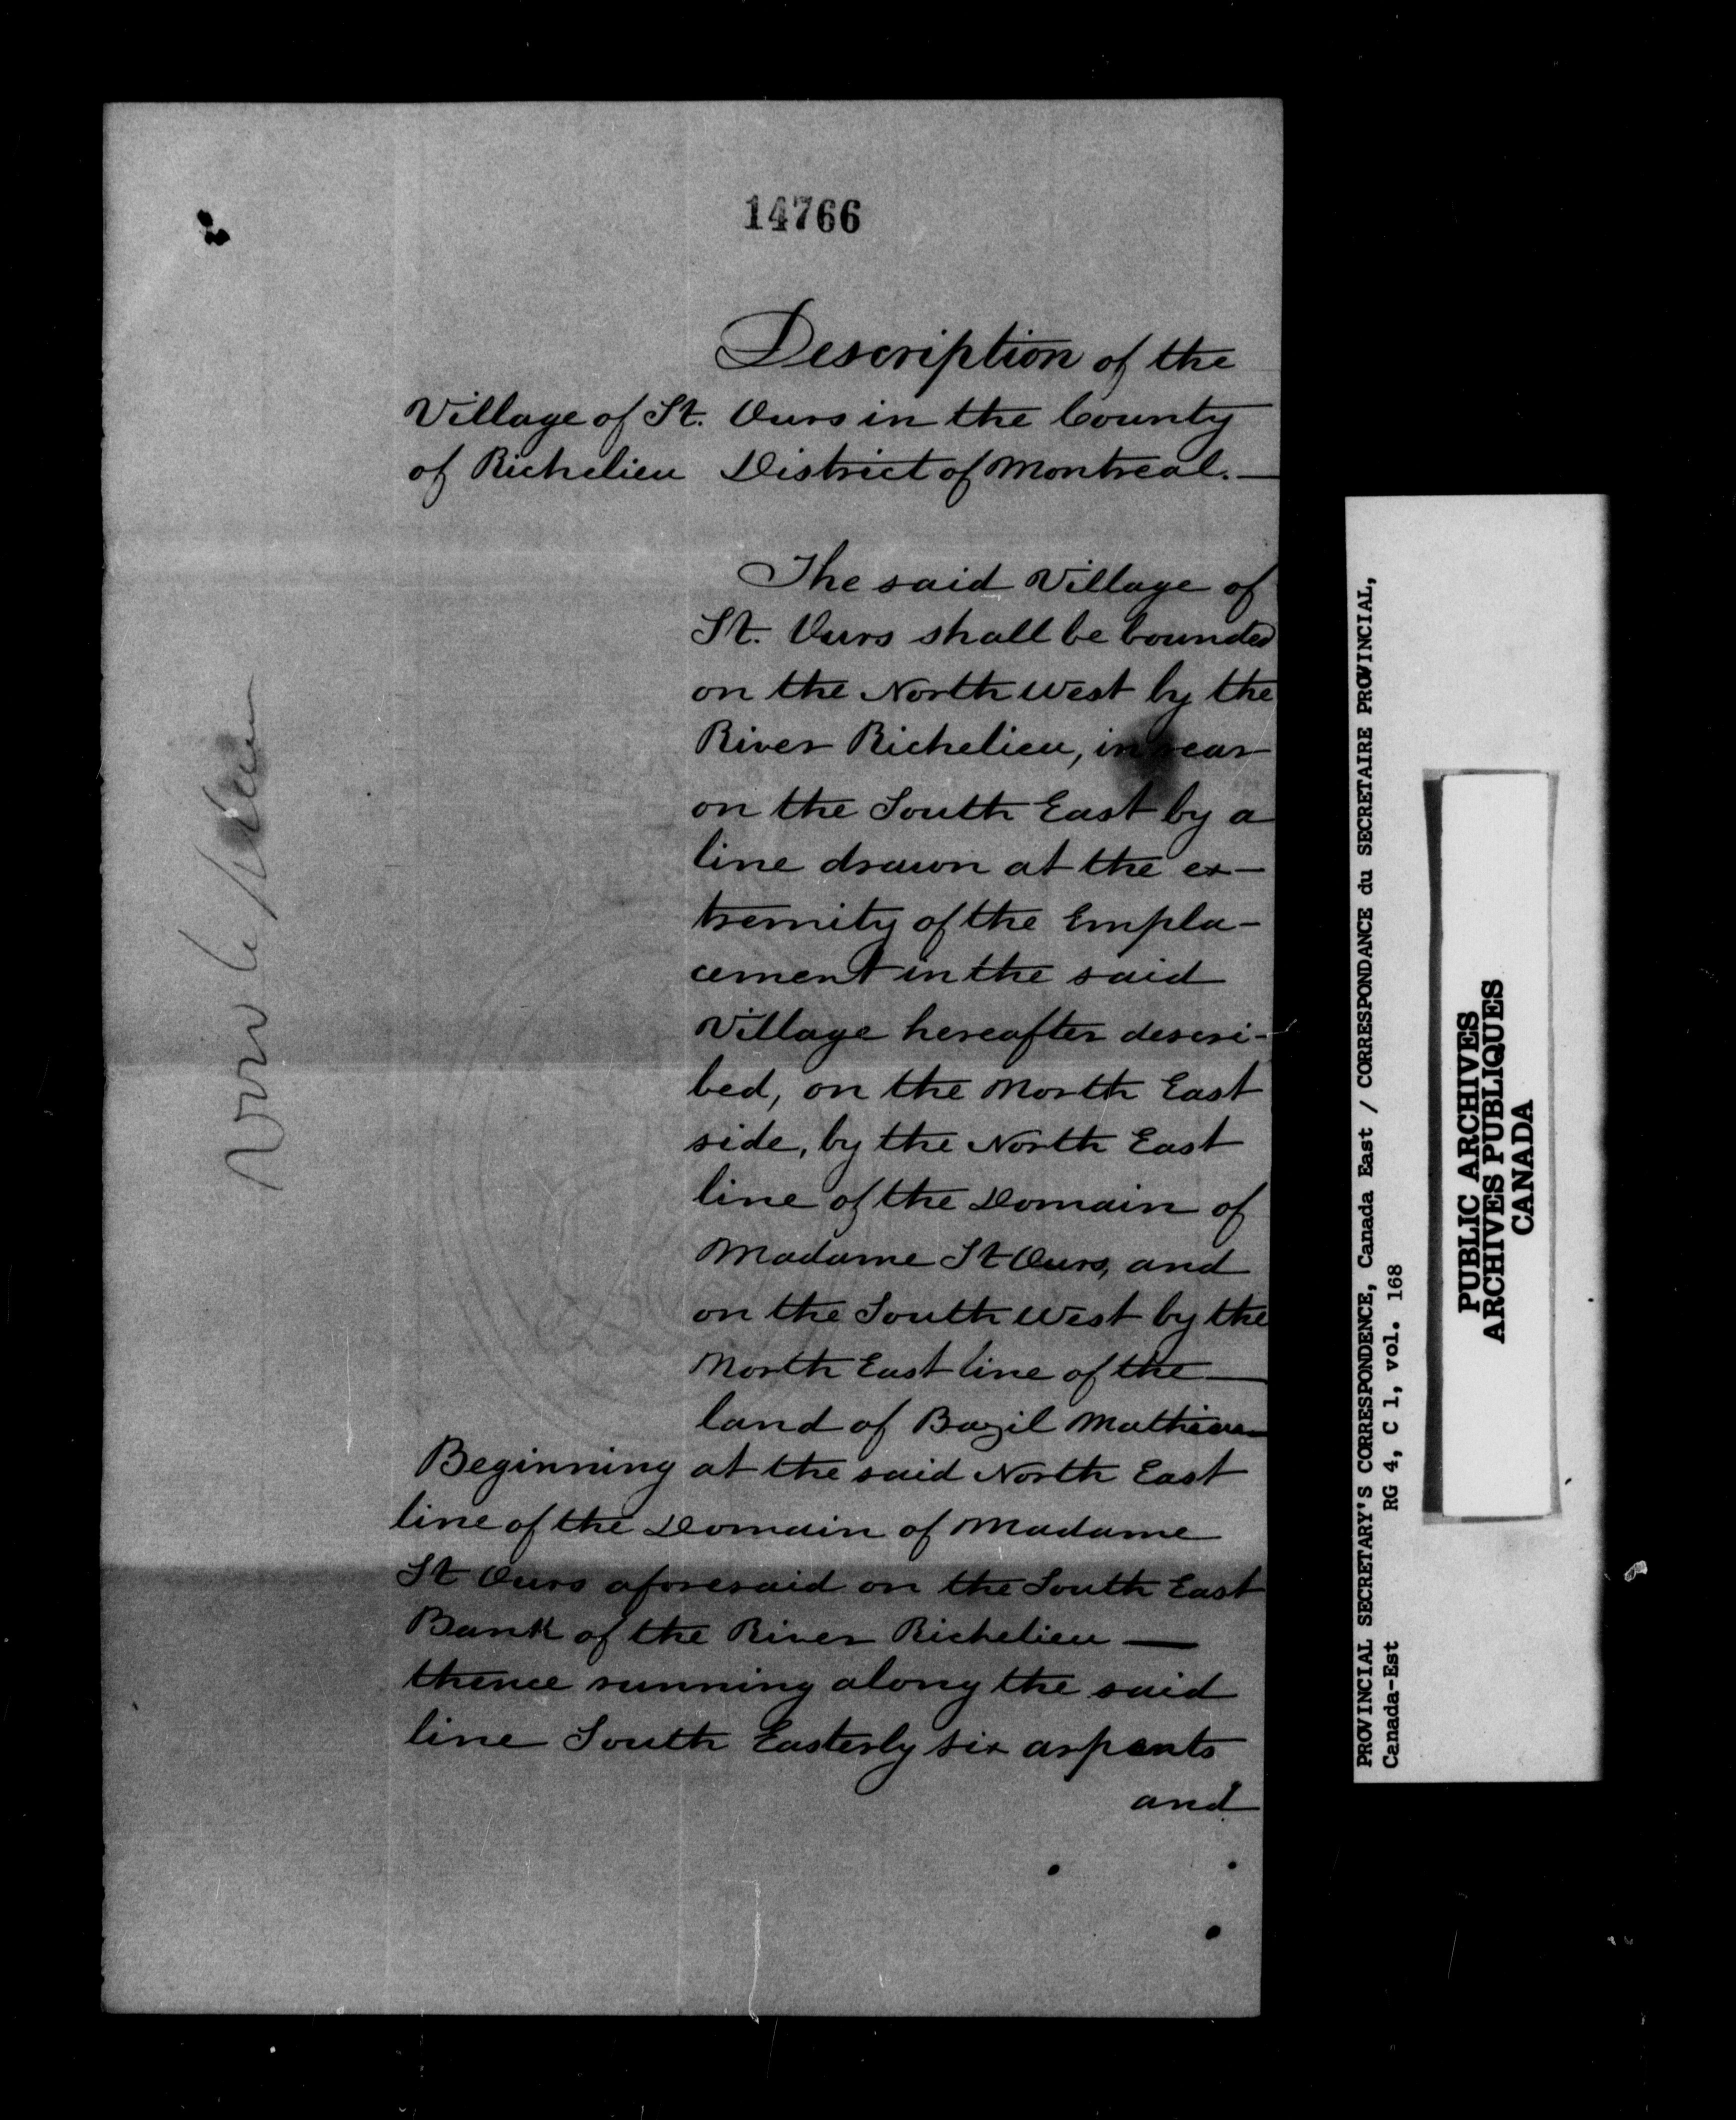 14766
Description of the
Village of St. Ours in the County
of Richelieu District of Montreal. —
The said Village of
St. Ours shall be bounded
on the North West by the
River Richelieu, in rear
on the South East by a
line drawn at the ex-
tremity of the Empla-
cement in the said
Village hereafter descri-
bed, on the North East
side, by the North East
line of the Domain of
Madame St Ours, and
on the South West by the
North East line of the —
land of Bazil Mathieu
Beginning at the said North East
line of the Domain of Madame
St Ours aforesaid on the South East
Bank of the River Richelieu —
thence running along the said
line South Easterly six arpents
and
PROVINCIAL SECRETARY'S CORRESPONDENCE, Canada East / CORRESPONDANCE du SECRETAIRE PROVINCIAL,
Canada-Est RG 4, C 1, vol. 168
PUBLIC ARCHIVES
ARCHIVES PUBLIQUES
CANADA